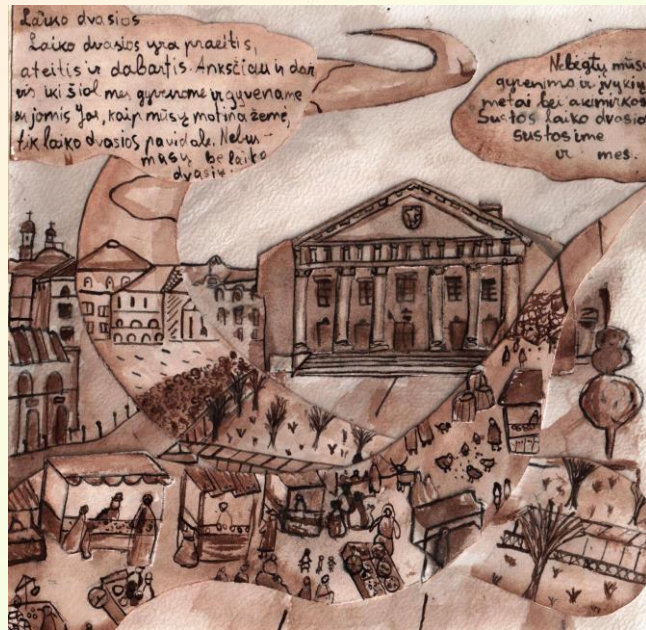 Laiko dvasios
Laiko dvasios yra praeitis,
ateitis ir dabartis. Anksčiau ir dar
vis iki šiol mes gyvenome ir gyvename
su jomis. Jos, kaip mūsų motina žemė,
tik laiko dvasios pavidale. Nebus
mūsų be laiko
dvasių.
Nebėgtų mūsų
gyvenimo ir įvykių
metai bei akimirkos
Sustos laiko dvasios
sustosime
ir mes.